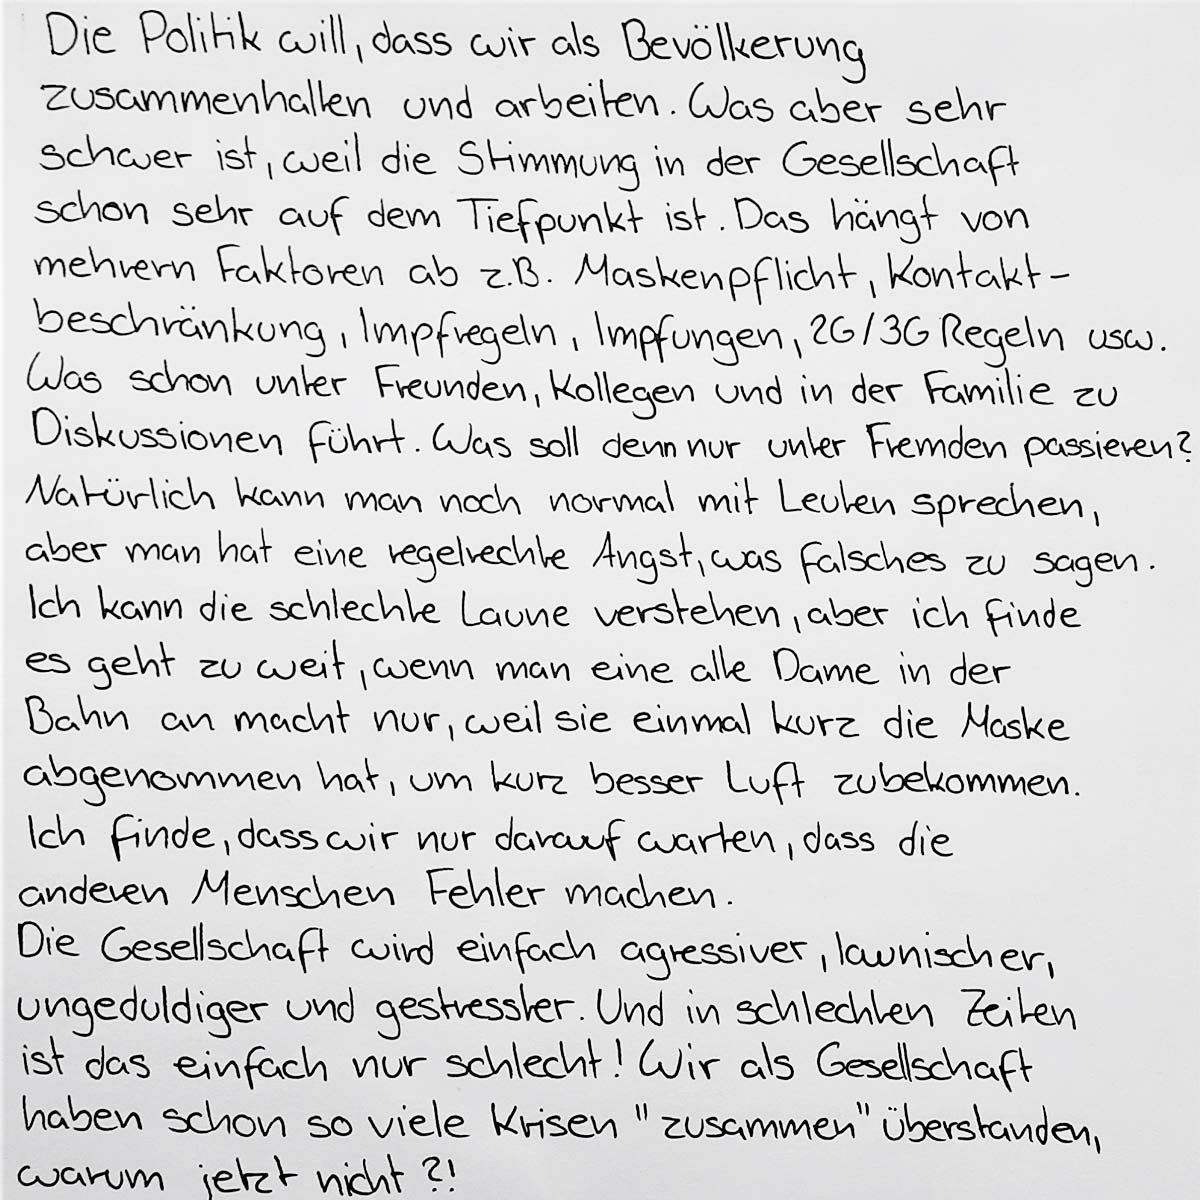 Die Politik will, dass wir als Bevölkerung
zusammenhalten und arbeiten. Was aber sehr
schwer ist, weil die Stimmung in der Gesellschaft
schon sehr auf dem Tiefpunkt ist. Das hängt von
mehrern Faktoren ab z.B. Maskenpflicht, Kontakt-
beschränkung, Impfregeln, Impfungen, 2G/3G Regeln usw.
Was schon unter Freunden, Kollegen und in der Familie zu
Diskussionen führt. Was soll denn nur unter Fremden passieren?
Natürlich kann man noch normal mit Leuten sprechen,
aber man hat eine regelrechte Angst, was falsches zu sagen.
Ich kann die schlechte Laune verstehen, aber ich finde
es geht zu weit, wenn man eine alte Dame in der
Bahn an macht nur, weil sie einmal kurz die Maske
abgenommen hat, um kurz besser Luft zubekommen.
Ich finde, dass wir nur darauf warten, dass die
anderen Menschen Fehler machen.
Die Gesellschaft wird einfach agressiver, launischer,
ungeduldiger und gestresster. Und in schlechten Zeiten
ist das einfach nur schlecht! Wir als Gesellschaft
haben schon so viele Krisen "zusammen" überstanden,
warum jetzt nicht?!